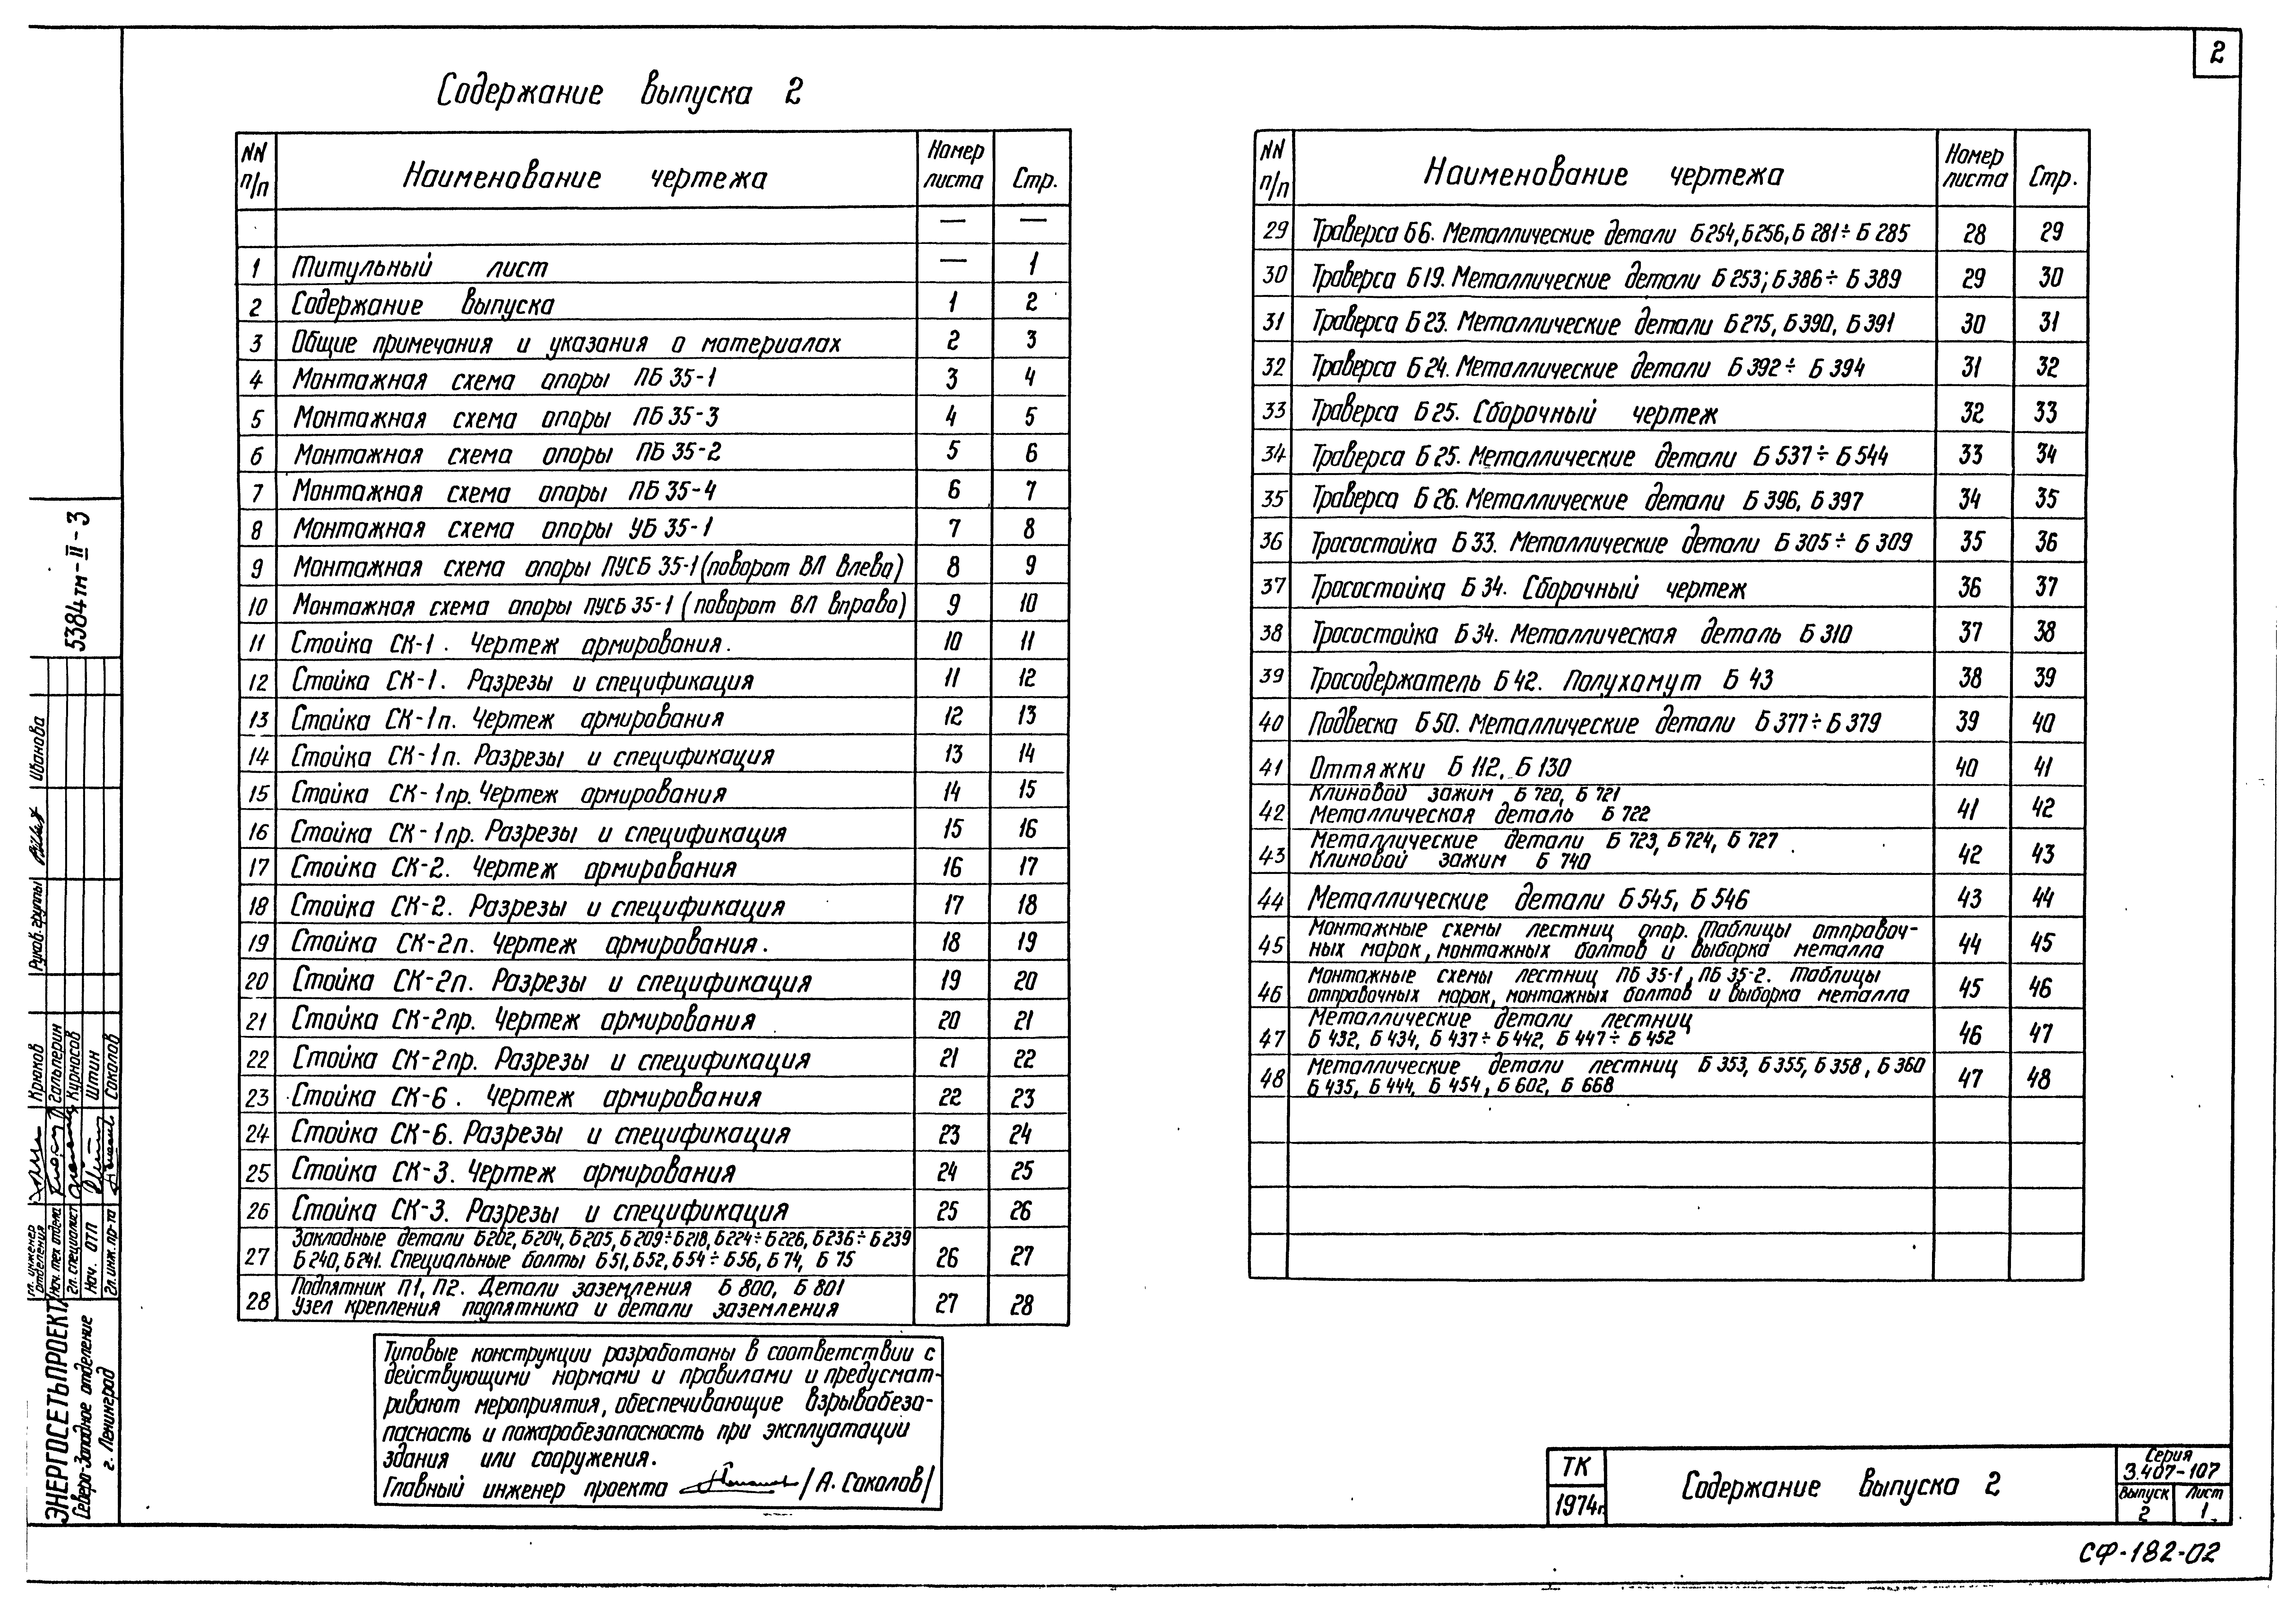 2
Содержание выпуска 2
NN п/п Наименование чертежа Номер листа Стр.
— —
1 Титульный лист — 1
2 Содержание выпуска 1 2
3 Общие примечания и указания о материалах 2 3
4 Монтажная схема опоры ПБ 35-1 3 4
5 Монтажная схема опоры ПБ 35-3 4 5
6 Монтажная схема опоры ПБ 35-2 5 6
7 Монтажная схема опоры ПБ 35-4 6 7
8 Монтажная схема опоры УБ 35-1 7 8
9 Монтажная схема опоры ПУСБ 35-1 (поворот ВЛ влево) 8 9
10 Монтажная схема опоры ПУСБ 35-1 (поворот ВЛ вправо) 9 10
11 Стойка СК-1. Чертеж армирования. 10 11
12 Стойка СК-1. Разрезы и спецификация 11 12
13 Стойка СК-1п. Чертеж армирования 12 13
14 Стойка СК-1п. Разрезы и спецификация 13 14
15 Стойка СК-1пр. Чертеж армирования 14 15
16 Стойка СК-1пр. Разрезы и спецификация 15 16
17 Стойка СК-2. Чертеж армирования 16 17
18 Стойка СК-2. Разрезы и спецификация 17 18
19 Стойка СК-2п. Чертеж армирования. 18 19
20 Стойка СК-2п. Разрезы и спецификация 19 20
21 Стойка СК-2пр. Чертеж армирования 20 21
22 Стойка СК-2пр. Разрезы и спецификация 21 22
23 Стойка СК-6. Чертеж армирования 22 23
24 Стойка СК-6. Разрезы и спецификация 23 24
25 Стойка СК-3. Чертеж армирования 24 25
26 Стойка СК-3. Разрезы и спецификация 25 26
27 Закладные детали Б202, Б204, Б205, Б209÷Б218, Б224÷Б226, Б236÷Б239
Б240, Б241. Специальные болты Б51, Б52, Б54÷Б56, Б74, Б75 26 27
28 Подпятник П1, П2. Детали заземления Б 800, Б 801
Узел крепления подпятника и детали заземления 27 28
NN п/п Наименование чертежа Номер листа Стр.
29 Траверса Б6. Металлические детали Б254, Б256, Б 281÷Б 285 28 29
30 Траверса Б19. Металлические детали Б 253; Б 386÷Б 389 29 30
31 Траверса Б23. Металлические детали Б 275, Б 390, Б 391 30 31
32 Траверса Б24. Металлические детали Б 392÷Б 394 31 32
33 Траверса Б25. Сборочный чертеж 32 33
34 Траверса Б25. Металлические детали Б 537÷Б 544 33 34
35 Траверса Б26. Металлические детали Б 396, Б 397 34 35
36 Тросостойка Б33. Металлические детали Б 305÷Б 309 35 36
37 Тросостойка Б34. Сборочный чертеж 36 37
38 Тросостойка Б34. Металлическая деталь Б 310 37 38
39 Тросодержатель Б42. Полухомут Б 43 38 39
40 Подвеска Б50. Металлические детали Б 377÷Б 379 39 40
41 Оттяжки Б 112, Б 130 40 41
42 Клиновой зажим Б 720, Б 721
Металлическая деталь Б 722 41 42
43 Металлические детали Б 723, Б 724, Б 727
Клиновой зажим Б 740 42 43
44 Металлические детали Б 545, Б 546 43 44
45 Монтажные схемы лестниц опор. Таблицы отправоч-
ных марок, монтажных болтов и выборка металла 44 45
46 Монтажные схемы лестниц ПБ 35-1, ПБ 35-2. Таблицы
отправочных марок, монтажных болтов и выборка металла 45 46
47 Металлические детали лестниц
Б 432, Б 434, Б 437÷Б 442, Б 447÷Б 452 46 47
48 Металлические детали лестниц Б 353, Б 355, Б 358, Б 360
Б 435, Б 444, Б 454, Б 602, Б 668 47 48
Типовые конструкции разработаны в соответствии с
действующими нормами и правилами и предусмат-
ривают мероприятия, обеспечивающие взрывобезо-
пасность и пожаробезопасность при эксплуатации
здания или сооружения.
Главный инженер проекта /А. Соколов/
ТК
1974г.
Содержание выпуска 2
Серия
3.407-107
Выпуск 2
Лист 1
СФ-182-02
5384тм-II-3
Руков. группы Иванова
Гл. инженер отделения Крюков
Нач. тех отдела Гальперин
Гл. специалист Курносов
Нач. ОТП Штин
Гл. инж. пр-та Соколов
ЭНЕРГОСЕТЬПРОЕКТ
Северо-Западное отделение
г. Ленинград